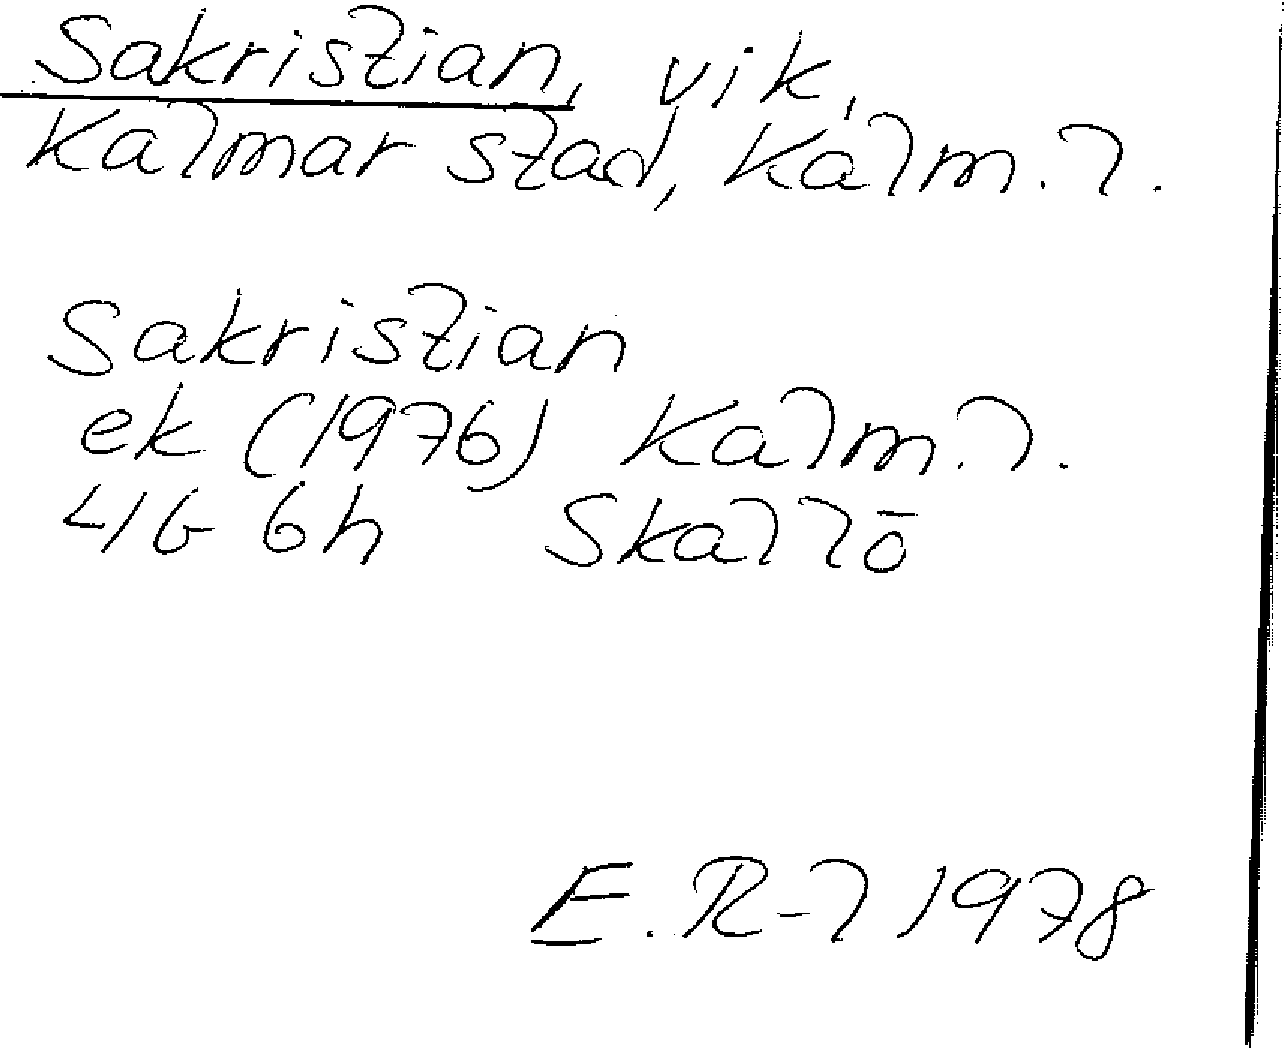 Sakristian, vik,
Kalmar stad, Kalm. l.
Sakristian
ek (1976) Kalm. l.
4G 6h Skallö
E. R-l 1978